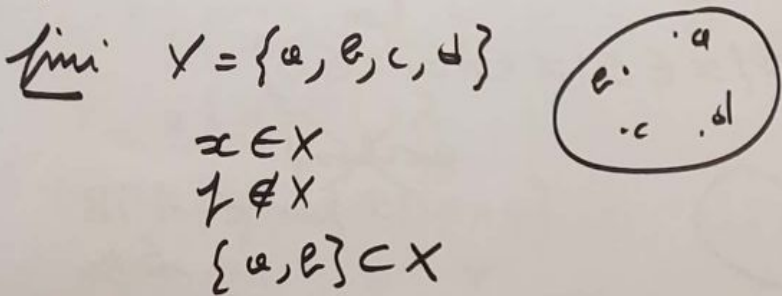 fini X = {a, b, c, d}
x ∈ X
f ∉ X
{a, b} ⊂ X
a
b
c
d